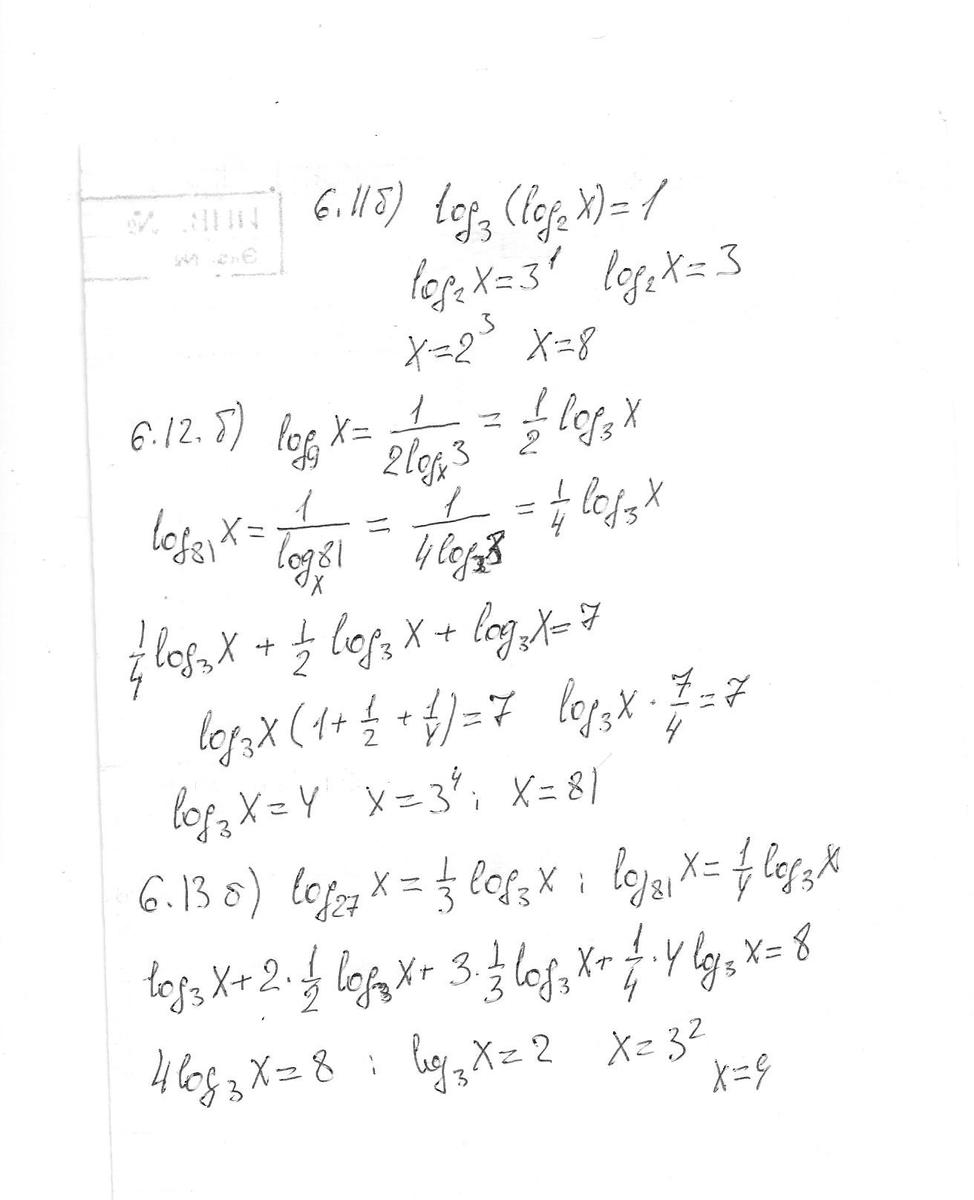 6.11б) log₃(log₂X)=1
log₂X=3¹ log₂X=3
X=2³ X=8
6.12.б) log₉X= 1/(2logₓ3) = 1/2 log₃X
log₈₁X= 1/(logₓ81) = 1/(4logₓ3) = 1/4 log₃X
1/4 log₃X + 1/2 log₃X + log₃X=7
log₃X(1+ 1/2 + 1/4)=7 log₃X · 7/4 =7
log₃X=4 X=3⁴; X=81
6.13б) log₂₇X= 1/3 log₃X ; log₈₁X= 1/4 log₃X
log₃X+2· 1/2 log₃X+ 3· 1/3 log₃X+ 1/4 ·4 lg₃X=8
4log₃X=8 ; log₃X=2 X=3²
X=9